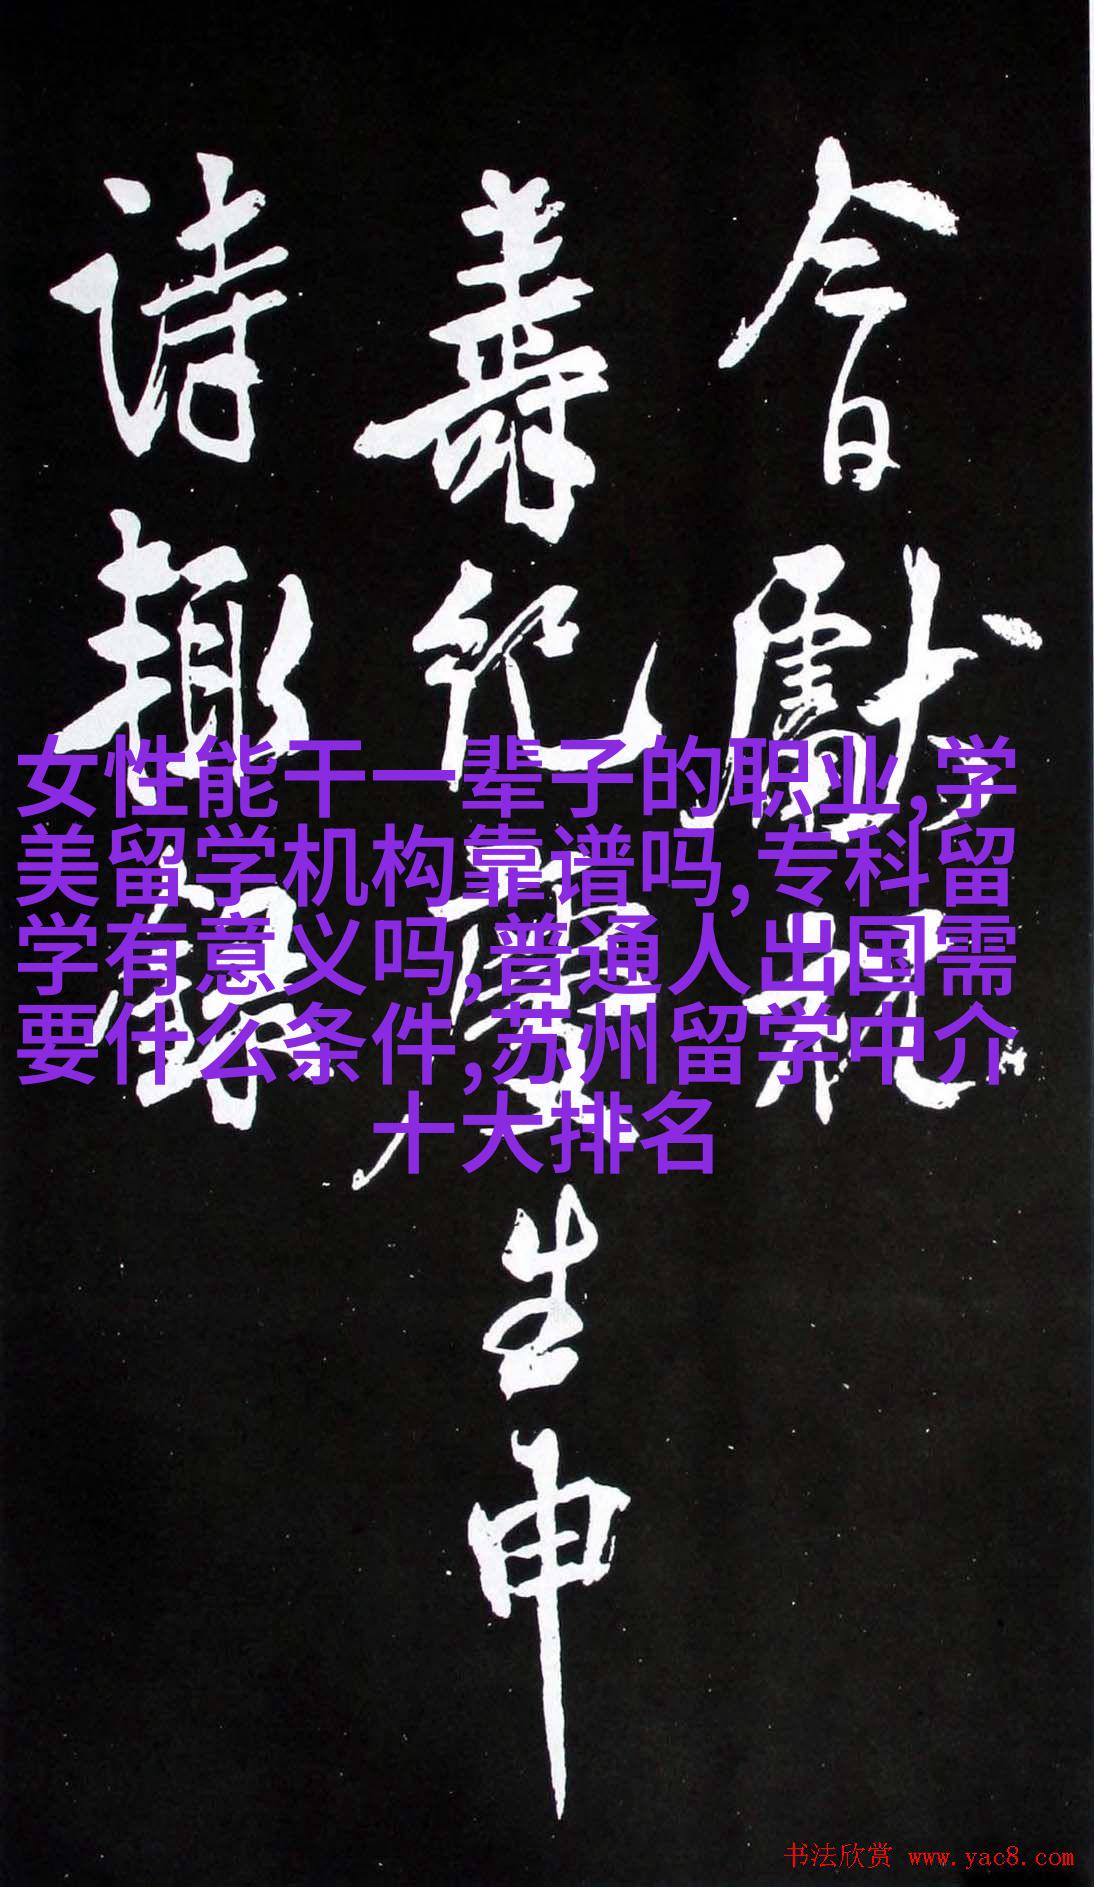 今日獻親
壽紀慶生申
詩趣錄
女性能干一辈子的职业,学
美留学机构靠谱吗,专科留
学有意义吗,普通人出国需
要什么条件,苏州留学中介
十大排名
书法欣赏 www.yac8.com